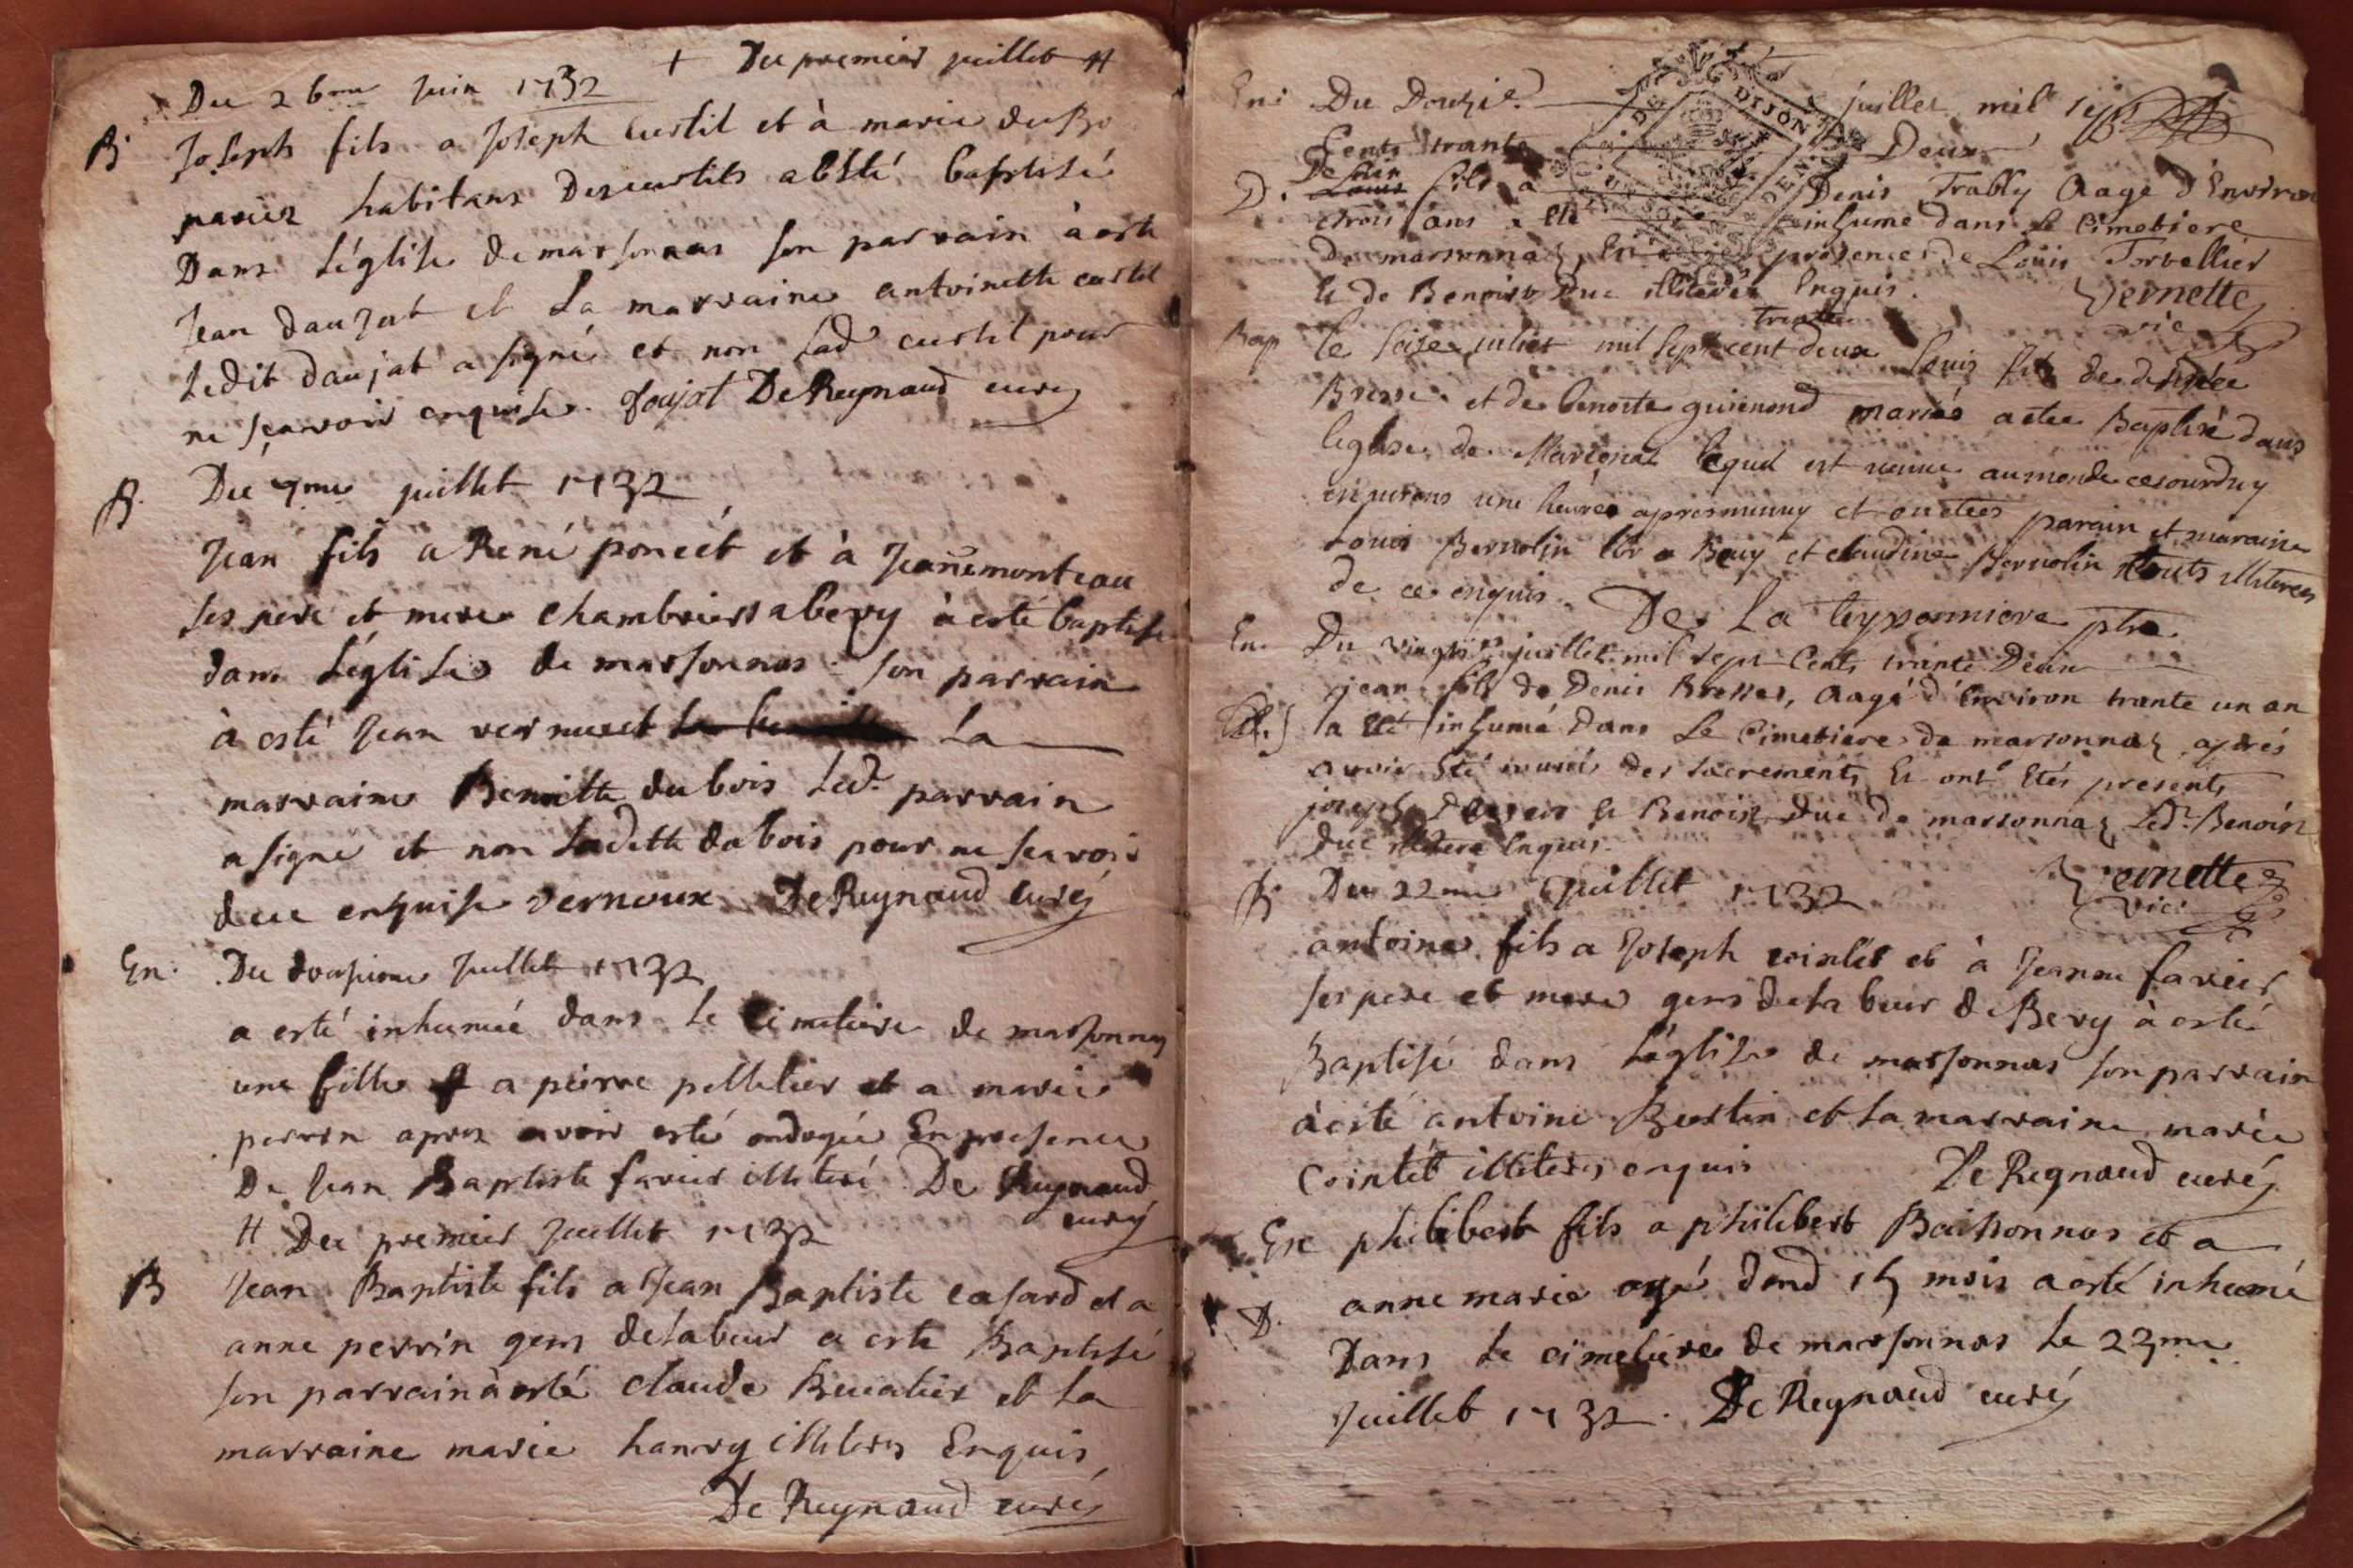 + Du premier juillet H
Du 26me Juin 1732
B Joseph fils a Joseph curtil et à marie duBo
paries habitans Descurtils a Esté baptisé
Dans L'église de marsonnas son parrain à esté
Jean daujat et La marraine antoinette curtil
Ledit daujat a signé et non Lad. curtil pour
ne sçavoir enquise. Dojat De Reynaud curé
B. Du 7me juillet 1732
Jean fils a René poncét et à Jeanne monteau
ses pere et mere chambriers a bevy à esté baptisé
dans L'église de marsonnas son parrain
à esté Jean vernuset La
marraine Benoitte dubois Led. parrain
a signé et non Ladette dubois pour ne sçavoir
deue enquise vernoux De Reynaud curé
En. Du douzieme Juillet 1732
a esté inhumée dans Le cimetiere de marsonnas
une fille a pierre pelletier et a marie
perrin apres avoir esté ondoyée En presence
De Jean Baptiste favier illiteré De Reynaud
curé
H Du premier Juillet 1732
B Jean Baptiste fils a Jean Baptiste casard et a
anne perrin gens de labeur a esté Baptisé
son parrain à esté claude Buiatier et La
marraine marie hanry illiterés Enquis
De Reynaud curé
En: Du Douzie. juillet mil sept
Cents trante Deux
D. Denis Louis fils a Denis Trably Aagé d'Environ
trois ans a été inhumé dans le Cimetiere
de marsonnaz, En presence de Loüis Torvellier
et de Benoist Duc illiterés Enquis. Vernette
vic
Bap le seise juliet mil sept cent trente deux Louis fils de desirée
Bresse et de benoite guienond mariés a etee Baptisé dans
leglise de Marconat lequel est venue au monde ce jourduy
enquirons une heures apres minuy et ont etees parain et maraine
Louis Bernolin lbr a Bevy et claudine Bernolin touts illiteres
de ce enquis. De La teyssonniere ptre
En. Du vingt. juillet mil sept Cents trante Deux
jean fils de Denis Bresses, Aagé d'Environ trante un an
a été inhumé dans Le Cimetiere de marsonnaz, aprés
avoir été muni des sacrements Et ont Etés presents
joseph et Benoist Duc de marsonnaz Led. Benoist
Duc illiteré Enquis. Vernette
vic:
B Du 22me Juillet 1732
antoine fils a Joseph cointet et à Jeanne favier
ses pere et mere gens de la beur de Bevy à esté
Baptisé dans L'église de marsonnas son parrain
à esté antoine Burtin et La marraine marie
Cointet illiterés enquis De Reynaud curé
En philibert fils a philibert Boissonnas et a
anne marie agé dond 15 mois a esté inhumé
D. Dans Le cimetiere de marsonnas Le 23me
Juillet 1732. De Reynaud curé